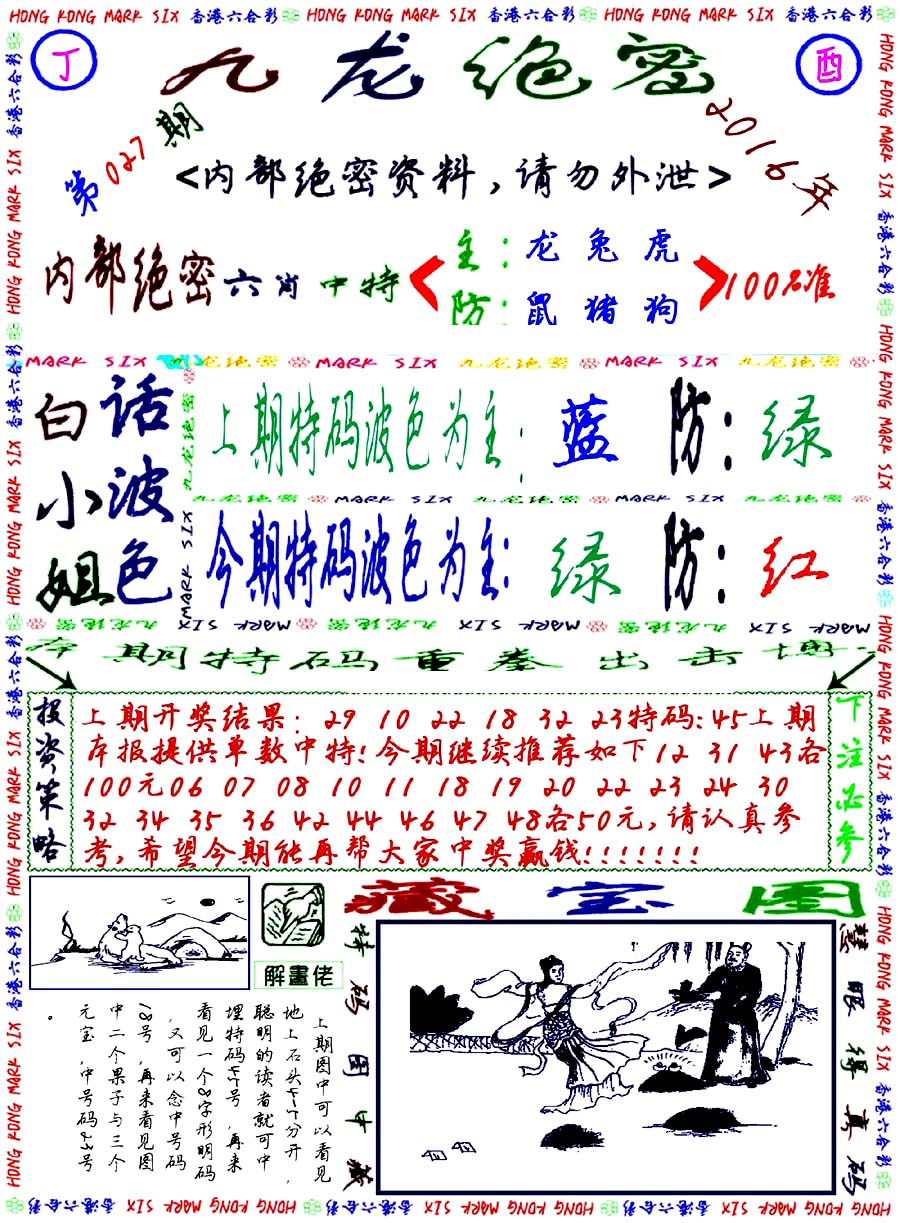 HONG KONG MARK SIX 香港六合彩 HONG KONG MARK SIX 香港六合彩 HONG KONG MARK SIX 香港六合彩
丁
九龙绝密
酉
第027期
2016年
<内部绝密资料,请勿外泄>
内部绝密六肖中特
主:龙兔虎
防:鼠猪狗
100%准
MARK SIX 九龙绝密 MARK SIX 九龙绝密 MARK SIX 九龙绝密
白小姐
话波色
上期特码波色为主:蓝 防:绿
九龙绝密 MARK SIX 九龙绝密 MARK SIX 九龙绝密
今期特码波色为主:绿 防:红
MARK SIX 九龙绝密 MARK SIX 九龙绝密 MARK SIX 九龙绝密
本期特码重拳出击博
投资策略
上期开奖结果: 29 10 22 18 32 23特码:45上期
本报提供单数中特!今期继续推荐如下12 31 43各
100元06 07 08 10 11 18 19 20 22 23 24 30
32 34 35 36 42 44 46 47 48各50元,请认真参
考,希望今期能再帮大家中奖赢钱!!!!!!!
下注必参
解畫佬
上期图中可以看见
地上石头4-5分开,
聪明的读者就可中
埋特码45号,再来
看见一个8字形明码
,又可以念中号码
18号,再来看见图
中二个果子与三个
元宝,中号码23号
。
藏宝图
特码图中藏
慧眼得真码
HONG KONG MARK SIX 香港六合彩 HONG KONG MARK SIX 香港六合彩 HONG KONG MARK SIX 香港六合彩